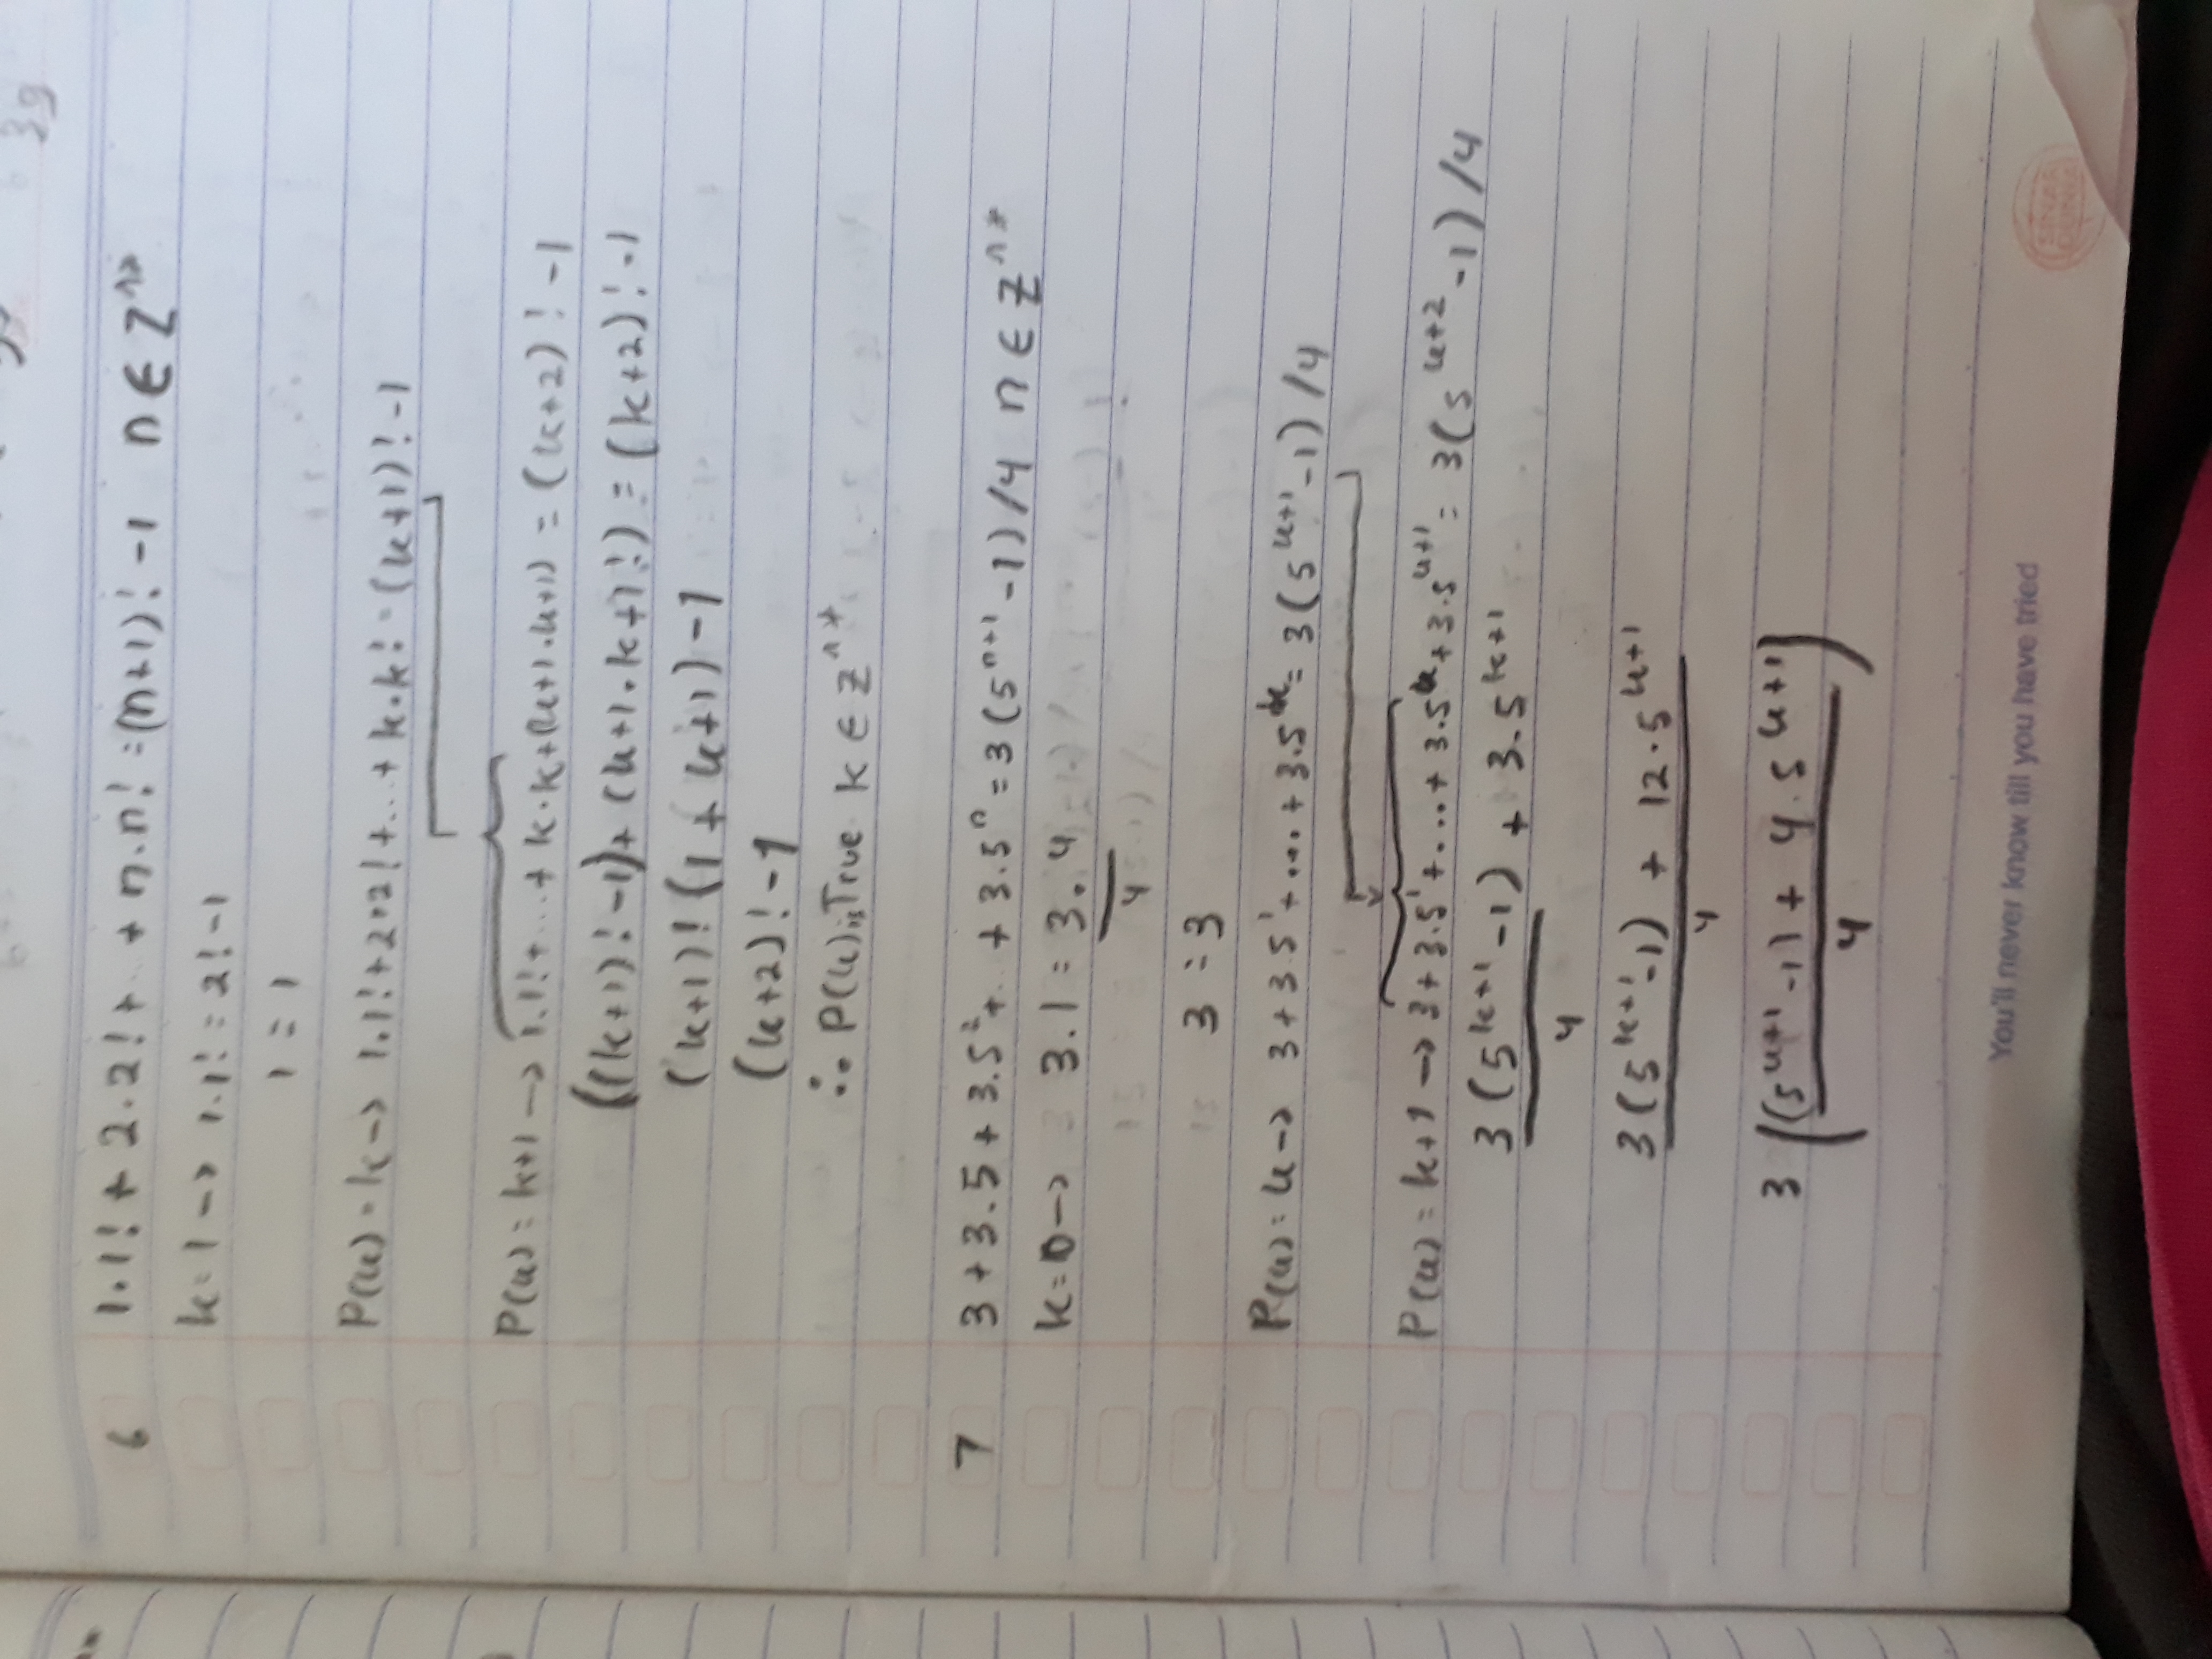 39
6 1.1! + 2.2! + .. + n.n! = (n+1)! -1 n ∈ Z^
k=1 -> 1.1! = 2! -1
1 = 1
P(k) = k -> 1.1! + 2.2! + ... + k.k! = (k+1)! -1
P(k) = k+1 -> 1.1! + ... + k.k + (k+1.k+1) = (k+2)! -1
((k+1)! -1) + (k+1.k+1!) = (k+2)! -1
(k+1)! (1 + k+1) -1
(k+2)! -1
∴ P(k) is True k ∈ Z^n*
7 3 + 3.5 + 3.5² + .. + 3.5^n = 3(5^n+1 -1)/4 n ∈ Z^n*
k=0 -> 3.1 = 3.4
4
3 = 3
P(k) = k -> 3 + 3.5^1 + .... + 3.5^k = 3(5^k+1 -1)/4
P(k) = k+1 -> 3 + 3.5^1 + .... + 3.5^k + 3.5^k+1 = 3(5^k+2 -1)/4
3(5^k+1 -1) + 3.5^k+1
4
3(5^k+1 -1) + 12.5^k+1
4
3((5^k+1 -1) + 4.5^k+1)
4
You'll never know till you have tried
SINAR
DUNIA